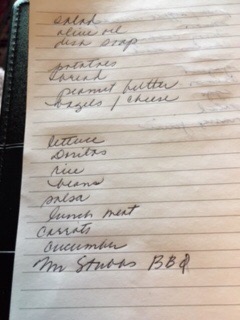 salad
olive oil
dish soap
potatoes
bread
peanut butter
bagels / cheese
lettuce
Doritos
rice
beans
salsa
lunch meat
carrots
cucumber
Mr Stubbs BBQ